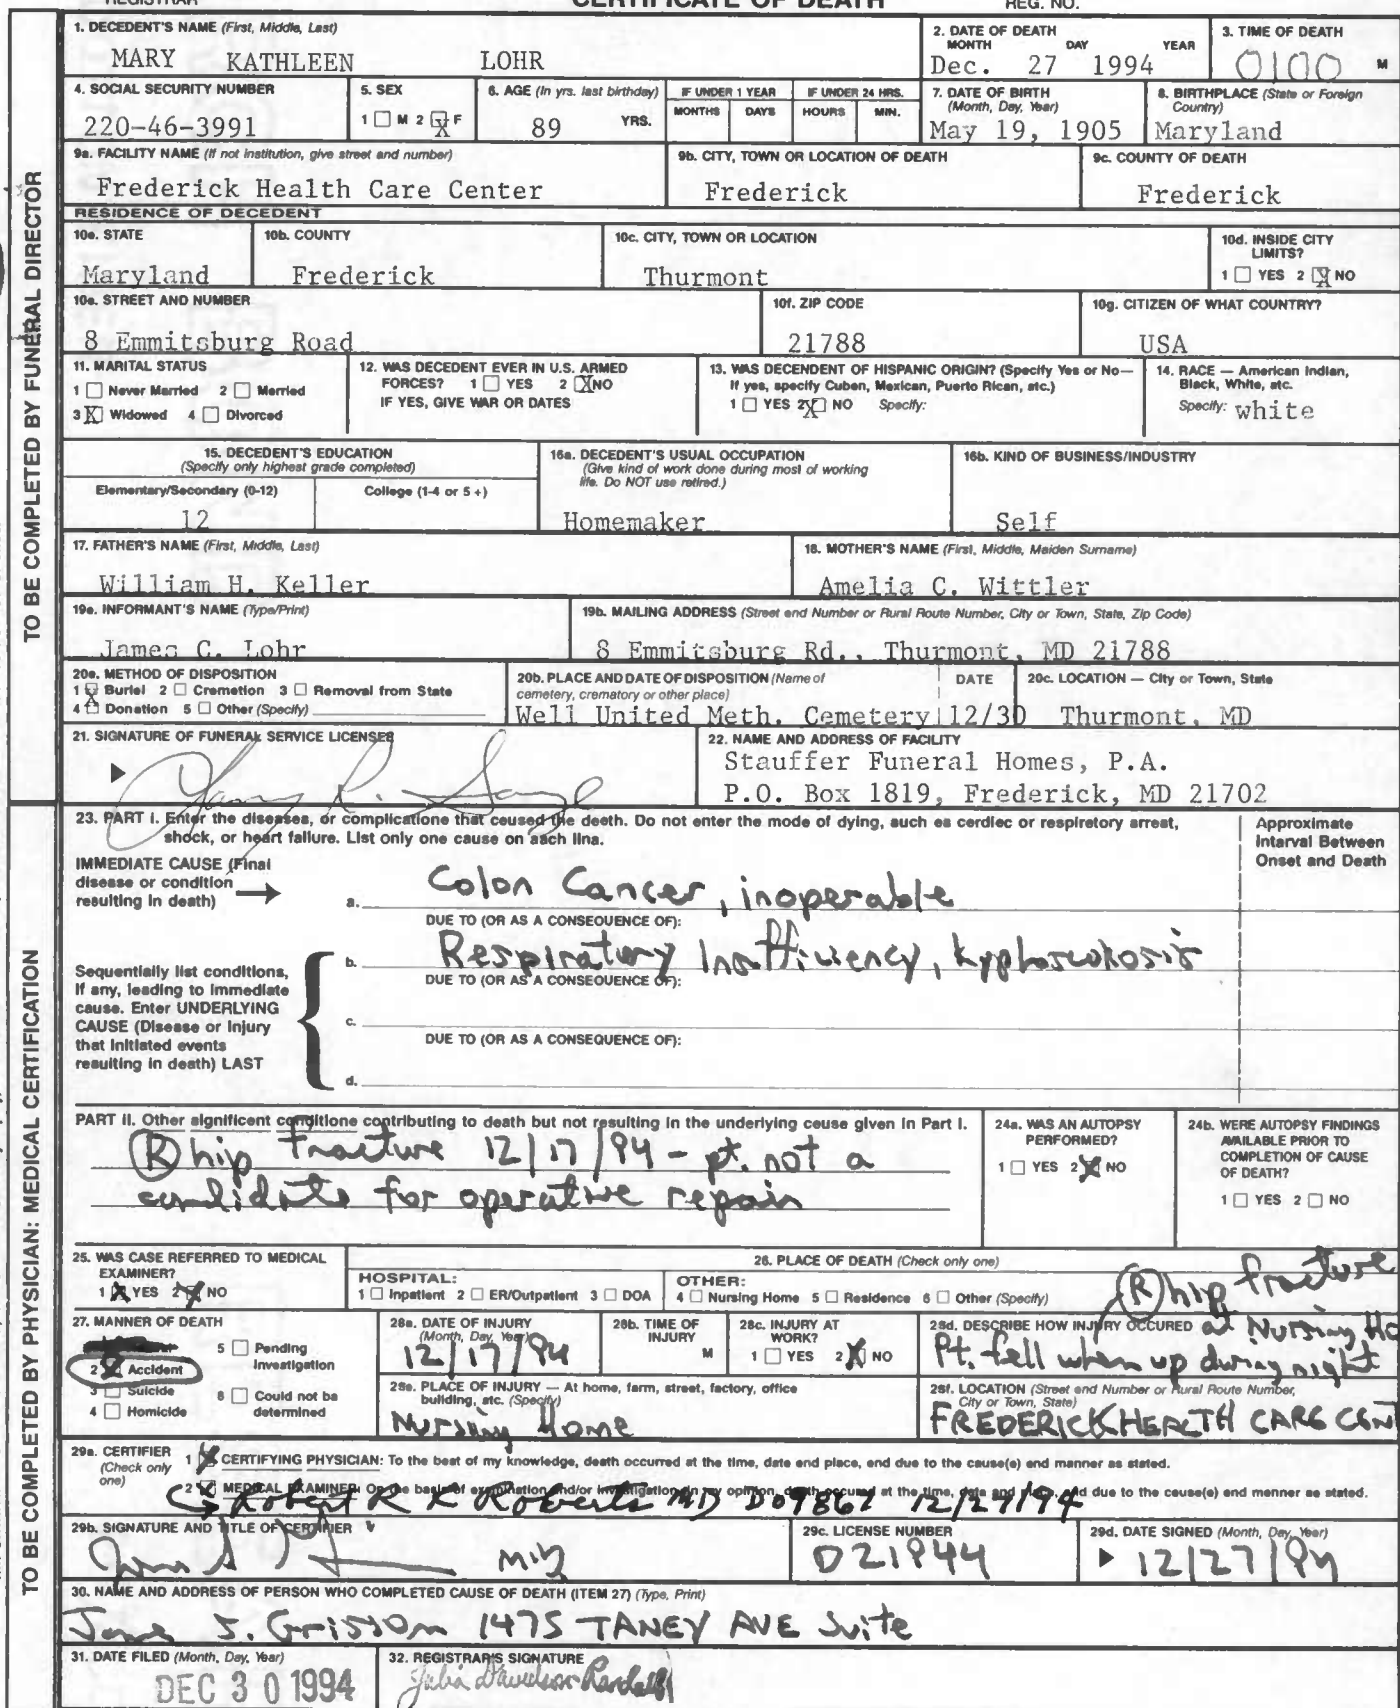 REGISTRAR CERTIFICATE OF DEATH REG. NO.
1. DECEDENT'S NAME (First, Middle, Last)
MARY KATHLEEN LOHR
2. DATE OF DEATH
MONTH DAY YEAR
Dec. 27 1994
3. TIME OF DEATH
0100 M
4. SOCIAL SECURITY NUMBER
220-46-3991
5. SEX
1 M 2 X F
6. AGE (In yrs. last birthday)
89 YRS.
IF UNDER 1 YEAR
MONTHS DAYS
IF UNDER 24 HRS.
HOURS MIN.
7. DATE OF BIRTH
(Month, Day, Year)
May 19, 1905
8. BIRTHPLACE (State or Foreign
Country)
Maryland
9a. FACILITY NAME (If not institution, give street and number)
Frederick Health Care Center
9b. CITY, TOWN OR LOCATION OF DEATH
Frederick
9c. COUNTY OF DEATH
Frederick
RESIDENCE OF DECEDENT
10a. STATE
Maryland
10b. COUNTY
Frederick
10c. CITY, TOWN OR LOCATION
Thurmont
10d. INSIDE CITY
LIMITS?
1 YES 2 X NO
10e. STREET AND NUMBER
8 Emmitsburg Road
10f. ZIP CODE
21788
10g. CITIZEN OF WHAT COUNTRY?
USA
11. MARITAL STATUS
1 Never Married 2 Married
3 X Widowed 4 Divorced
12. WAS DECEDENT EVER IN U.S. ARMED
FORCES? 1 YES 2 X NO
IF YES, GIVE WAR OR DATES
13. WAS DECENDENT OF HISPANIC ORIGIN? (Specify Yes or No—
If yes, specify Cuban, Mexican, Puerto Rican, etc.)
1 YES 2 X NO Specify:
14. RACE — American Indian,
Black, White, etc.
Specify: white
15. DECEDENT'S EDUCATION
(Specify only highest grade completed)
Elementary/Secondary (0-12) College (1-4 or 5+)
12
16a. DECEDENT'S USUAL OCCUPATION
(Give kind of work done during most of working
life. Do NOT use retired.)
Homemaker
16b. KIND OF BUSINESS/INDUSTRY
Self
17. FATHER'S NAME (First, Middle, Last)
William H. Keller
18. MOTHER'S NAME (First, Middle, Maiden Surname)
Amelia C. Wittler
19a. INFORMANT'S NAME (Type/Print)
James C. Lohr
19b. MAILING ADDRESS (Street and Number or Rural Route Number, City or Town, State, Zip Code)
8 Emmitsburg Rd., Thurmont, MD 21788
20a. METHOD OF DISPOSITION
1 X Burial 2 Cremation 3 Removal from State
4 Donation 5 Other (Specify)
20b. PLACE AND DATE OF DISPOSITION (Name of
cemetery, crematory or other place)
Well United Meth. Cemetery
DATE
12/30
20c. LOCATION — City or Town, State
Thurmont, MD
21. SIGNATURE OF FUNERAL SERVICE LICENSEE
22. NAME AND ADDRESS OF FACILITY
Stauffer Funeral Homes, P.A.
P.O. Box 1819, Frederick, MD 21702
TO BE COMPLETED BY FUNERAL DIRECTOR
23. PART I. Enter the diseases, or complications that caused the death. Do not enter the mode of dying, such as cardiac or respiratory arrest,
shock, or heart failure. List only one cause on each line.
Approximate
Interval Between
Onset and Death
IMMEDIATE CAUSE (Final
disease or condition
resulting in death)
a. Colon Cancer, inoperable
DUE TO (OR AS A CONSEQUENCE OF):
b. Respiratory Insufficiency, kyphoscoliosis
DUE TO (OR AS A CONSEQUENCE OF):
Sequentially list conditions,
If any, leading to immediate
cause. Enter UNDERLYING
CAUSE (Disease or Injury
that initiated events
resulting in death) LAST
c.
DUE TO (OR AS A CONSEQUENCE OF):
d.
PART II. Other significant conditions contributing to death but not resulting in the underlying cause given in Part I.
(R) hip fracture 12/17/94 - pt. not a
candidate for operative repair
24a. WAS AN AUTOPSY
PERFORMED?
1 YES 2 X NO
24b. WERE AUTOPSY FINDINGS
AVAILABLE PRIOR TO
COMPLETION OF CAUSE
OF DEATH?
1 YES 2 NO
25. WAS CASE REFERRED TO MEDICAL
EXAMINER?
1 X YES 2 X NO
26. PLACE OF DEATH (Check only one)
HOSPITAL:
1 Inpatient 2 ER/Outpatient 3 DOA
OTHER:
4 Nursing Home 5 Residence 6 Other (Specify)
27. MANNER OF DEATH
2 X Accident
3 Suicide
4 Homicide
5 Pending
Investigation
6 Could not be
determined
28a. DATE OF INJURY
(Month, Day, Year)
12/17/94
28b. TIME OF
INJURY
M
28c. INJURY AT
WORK?
1 YES 2 X NO
28d. DESCRIBE HOW INJURY OCCURED
(R) hip fracture
at Nursing Ho
Pt. fell when up during night
28e. PLACE OF INJURY — At home, farm, street, factory, office
building, etc. (Specify)
Nursing Home
28f. LOCATION (Street and Number or Rural Route Number,
City or Town, State)
FREDERICK HEALTH CARE CENT
29a. CERTIFIER
(Check only
one)
1 X CERTIFYING PHYSICIAN: To the best of my knowledge, death occurred at the time, date and place, and due to the cause(s) and manner as stated.
2 X MEDICAL EXAMINER: On the basis of examination and/or investigation, in my opinion, death occured at the time, date and place, and due to the cause(s) and manner as stated.
Robert R K Roberts MD D09867 12/27/94
29b. SIGNATURE AND TITLE OF CERTIFIER
MD
29c. LICENSE NUMBER
D21944
29d. DATE SIGNED (Month, Day, Year)
12/27/94
30. NAME AND ADDRESS OF PERSON WHO COMPLETED CAUSE OF DEATH (ITEM 27) (Type, Print)
J. Grissom 1475 TANEY AVE Suite
31. DATE FILED (Month, Day, Year)
DEC 30 1994
32. REGISTRAR'S SIGNATURE
Julia Davidson Randall
TO BE COMPLETED BY PHYSICIAN: MEDICAL CERTIFICATION